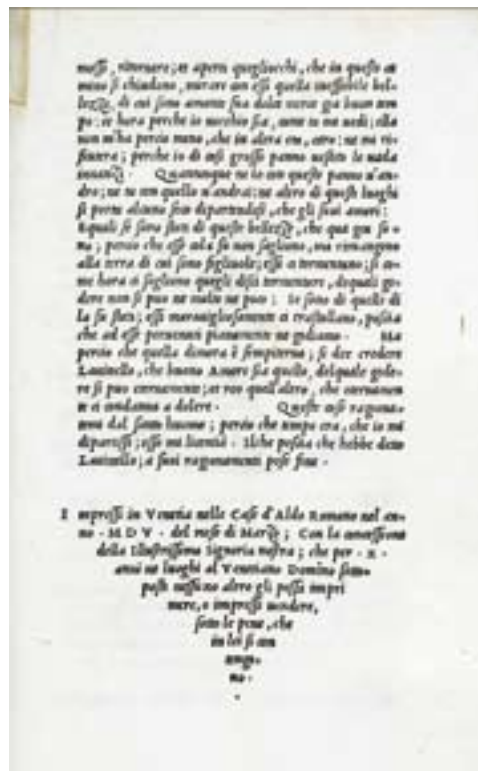 mosse, ritornare; et aperti quegliocchi, che in questo ca
mino si chiudono, mirare con essi quella ineffabile bel-
lezza, di cui sono amante sua dolce merce gia buon tem
po: et hora perche io vecchio sia, come tu mi vedi; ella
non m'ha percio meno, che in altra eta, caro: ne mi ri-
fiutera; perche io di cosi grosso panno vestito le vada
innanzi. Quantunque ne io con questo panno n'an-
dro; ne tu con quello n'andrai: ne altro di questi luoghi
si porta alcuno seco dipartendosi, che gli suoi amori:
Equali se sono stati di queste bellezze, che qua giu so-
no; percio che esse cola su non sagliono, ma rimangono
alla terra di cui sono figliuole; essi ci tormentano; si co-
me hora ci sogliono quegli disii tormentare, dequali go-
dere non si puo ne molto ne poco: Se sono di quelle di
la su stati; essi maravigliosamente ci trastullano, poscia
che ad esse pervenuti pienamente ne godiamo. Ma
percio che quella dimora è sempiterna; si dee credere
Lavinello, che buono Amore sia quello, delquale gode-
re si puo eternamente; et reo quell'altro, che eternamen
te ci condanna a dolere. Queste cose ragiona-
temi dal santo huomo; percio che tempo era, che io mi
dipartissi; esso mi licentiò. Ilche poscia che hebbe detto
Lavinello; a suoi ragionamenti pose fine.
Impressi in Venetia nelle Case d'Aldo Romano nel an-
no. MDV. del mese di Marzo; Con la concessione
della Illustrissima Signoria nostra; che per. X.
anni ne luoghi al Venetiano Dominio sotto-
posti nessuno altro gli possa impri
mere, o impressi vendere,
sotto le pene, che
in lei si con
tengo-
no.